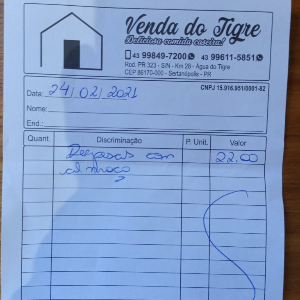 Venda do Tigre
Deliciosa comida caseira!
43 99849-7200 43 99611-5851
Rod. PR 323 - S/N - Km 28 - Água do Tigre
CEP 86170-000 - Sertanópolis - PR
CNPJ 15.916.951/0001-82
Data: 24/02/2021
Nome:
End.:
Quant. Discriminação P. Unit. Valor
Despesas com 22,00
almoço